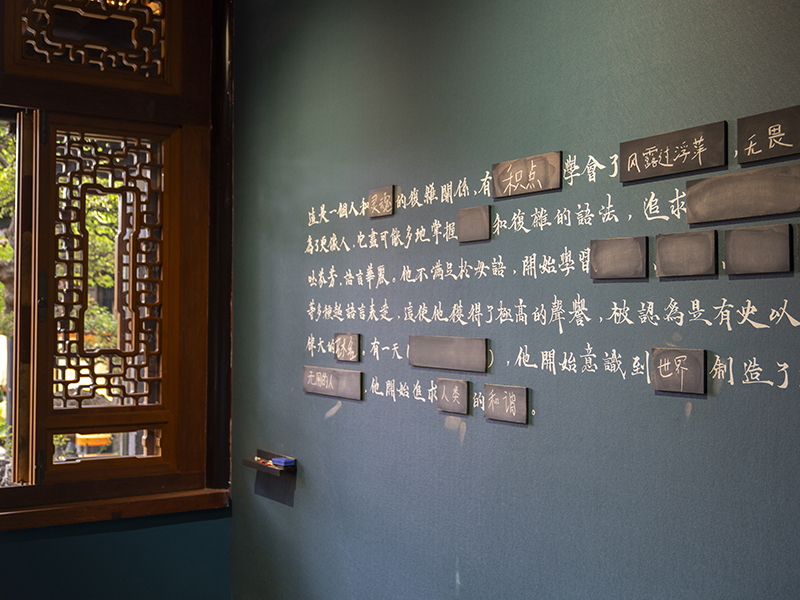 這是一個人和灵魂的復雜關係,有积点學會了风露过浮萍,无畏
為了更像人,它盡可能多地掌握和復雜的語法,追求
以芬芳、語言華麗。他不滿足於母語,開始學習、、
等多種越語言未走,這使他獲得了極高的聲譽,被認為是有史以
偉大的。有一天( ),他開始意識到世界創造了
无用的人,他開始追求人类的和谐。